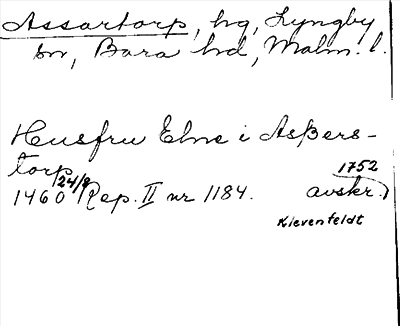 Assartorp, hg, Lyngby
sn, Bara hd, Malm. l.
Husfru Elne i Assers-
torp
1460 24/8 Rep. II nr 1184. 1752 avskr.)
Klevenfeldt